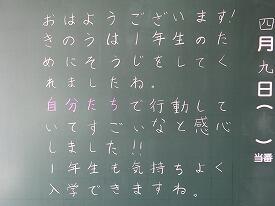 おはようございます!
きのうは1年生のた
めにそうじをしてく
れましたね。
自分たちで行動して
いてすごいなと感心
しました!!
1年生も気持ちよく
入学できますね。
四月九日( )
当番